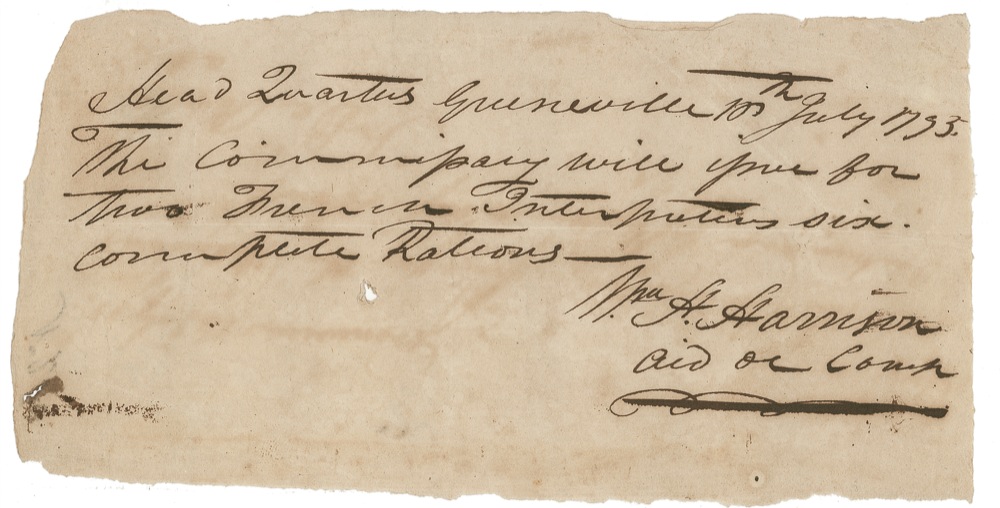 Head Quarters Greeneville 10th July 1795.
The Commissary will issue for
two French Interpreters six
complete Rations—
Wm H. Harrison
aid de Camp